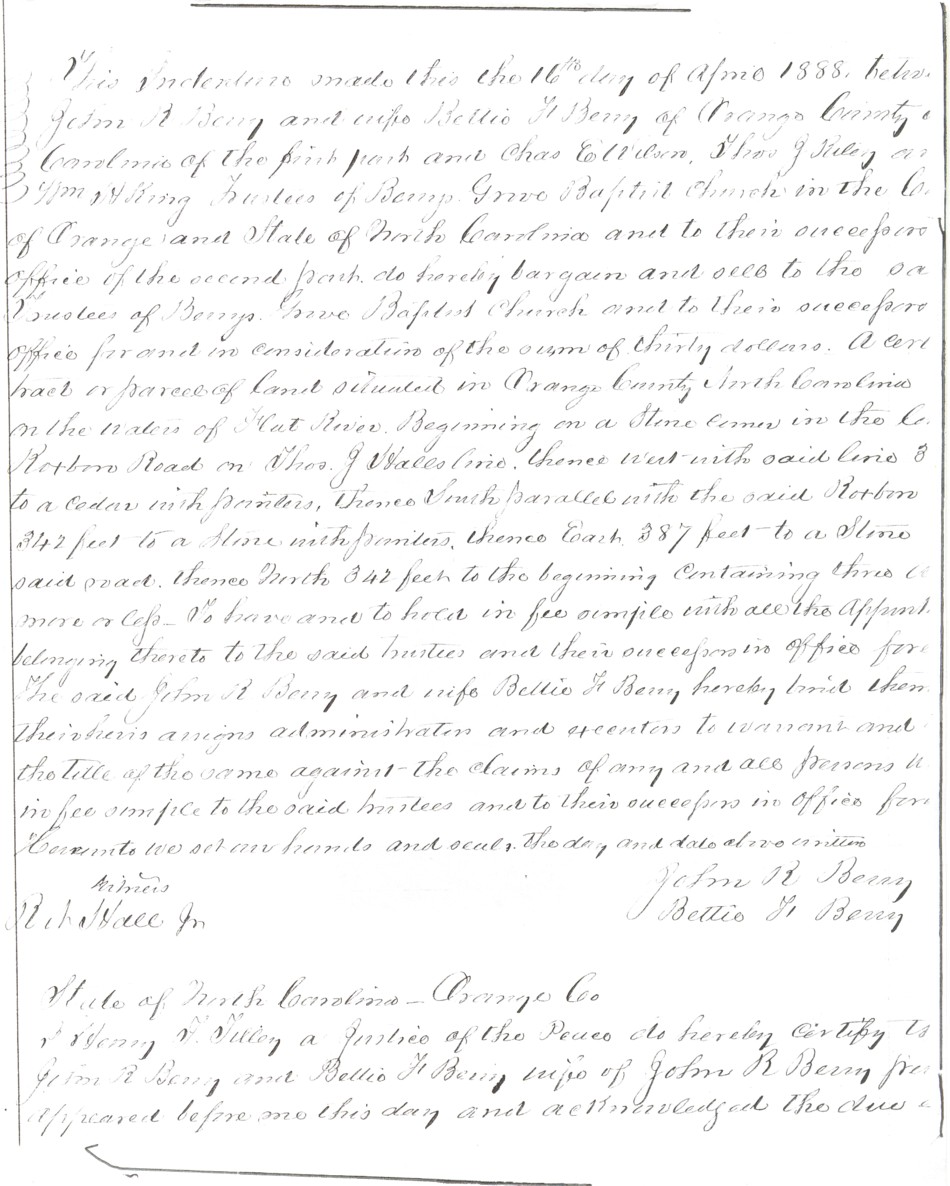 This Indenture made this the 16th day of April 1888. betw
John R Berry and wife Bettie F Berry of Orange County
Carolina of the first part and Chas E Wilson, Thos J Riley an
Wm H King Trustees of Berrys Grove Baptist Church in the Co
of Orange and State of North Carolina and to their successors
office of the second part. do hereby bargain and sell to the sa
Trustees of Berrys Grove Baptist Church and to their successors
office for and in consideration of the sum of thirty dollars. A cert
tract or parcel of land situated in Orange County North Carolina
on the waters of Flat River. Beginning on a Stone corner in the
Roxboro Road on Thos. J Halls line, thence West with said line 3
to a cedar with pointers, thence South parallel with the said Roxboro
342 feet to a Stone with pointers, thence East 387 feet to a Stone
said road. thence North 342 feet to the beginning containing three
more or less — To have and to hold in fee simple with all the Appurt
belonging thereto to the said trustees and their successors in office fore
The said John R Berry and wife Bettie F Berry hereby bind them
their heirs assigns administrators and executors to warrant and
the title of the same against the claims of any and all persons w
in fee simple to the said trustees and to their successors in office for
Hereunto we set our hands and seals, the day and date above written
Witness
John R Berry
Hall Jr
Bettie F Berry
State of North Carolina — Orange Co
I Henry T. Tilley a Justice of the Peace do hereby certify
John R Berry and Bettie F Berry wife of John R Berry
appeared before me this day and acknowledged the due